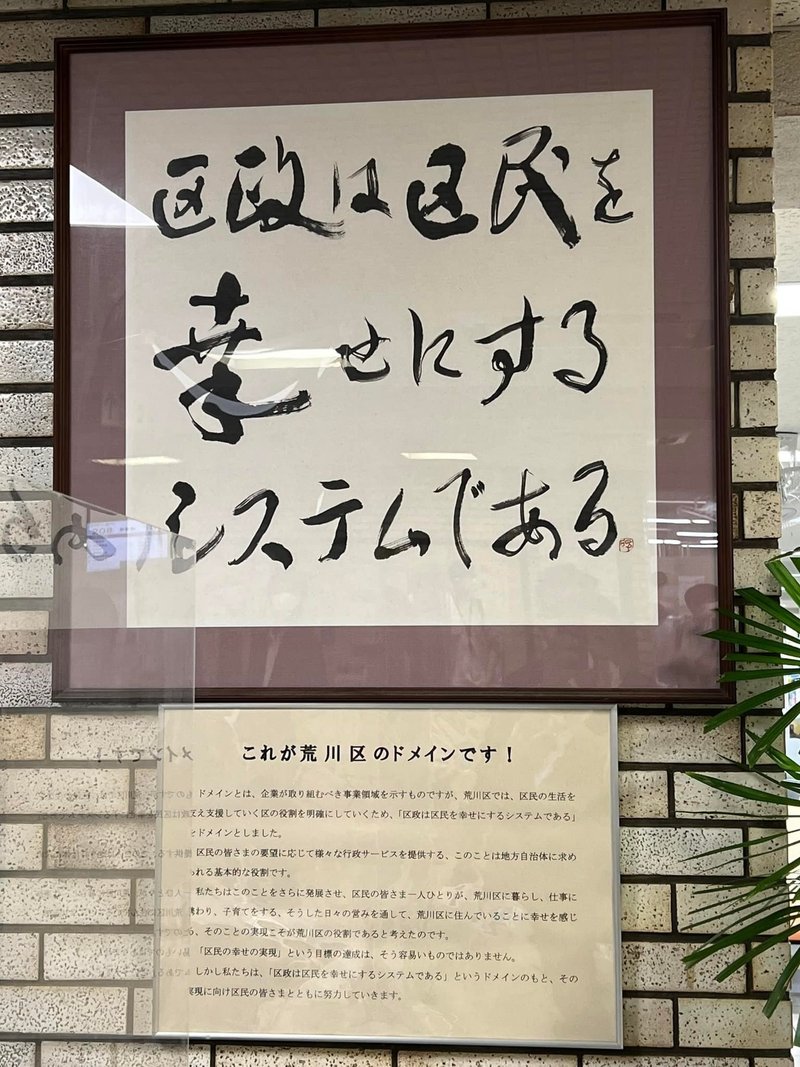 区政は区民を
幸せにする
システムである
これが荒川区のドメインです！
ドメインとは、企業が取り組むべき事業領域を示すものですが、荒川区では、区民の生活を
支え支援していく区の役割を明確にしていくため、「区政は区民を幸せにするシステムである」
をドメインとしました。
区民の皆さまの要望に応じて様々な行政サービスを提供する、このことは地方自治体に求め
られる基本的な役割です。
私たちはこのことをさらに発展させ、区民の皆さま一人ひとりが、荒川区に暮らし、仕事に
携わり、子育てをする、そうした日々の営みを通して、荒川区に住んでいることに幸せを感じ
る、そのことの実現こそが荒川区の役割であると考えたのです。
「区民の幸せの実現」という目標の達成は、そう容易いものではありません。
しかし私たちは、「区政は区民を幸せにするシステムである」というドメインのもと、その
実現に向け区民の皆さまとともに努力していきます。